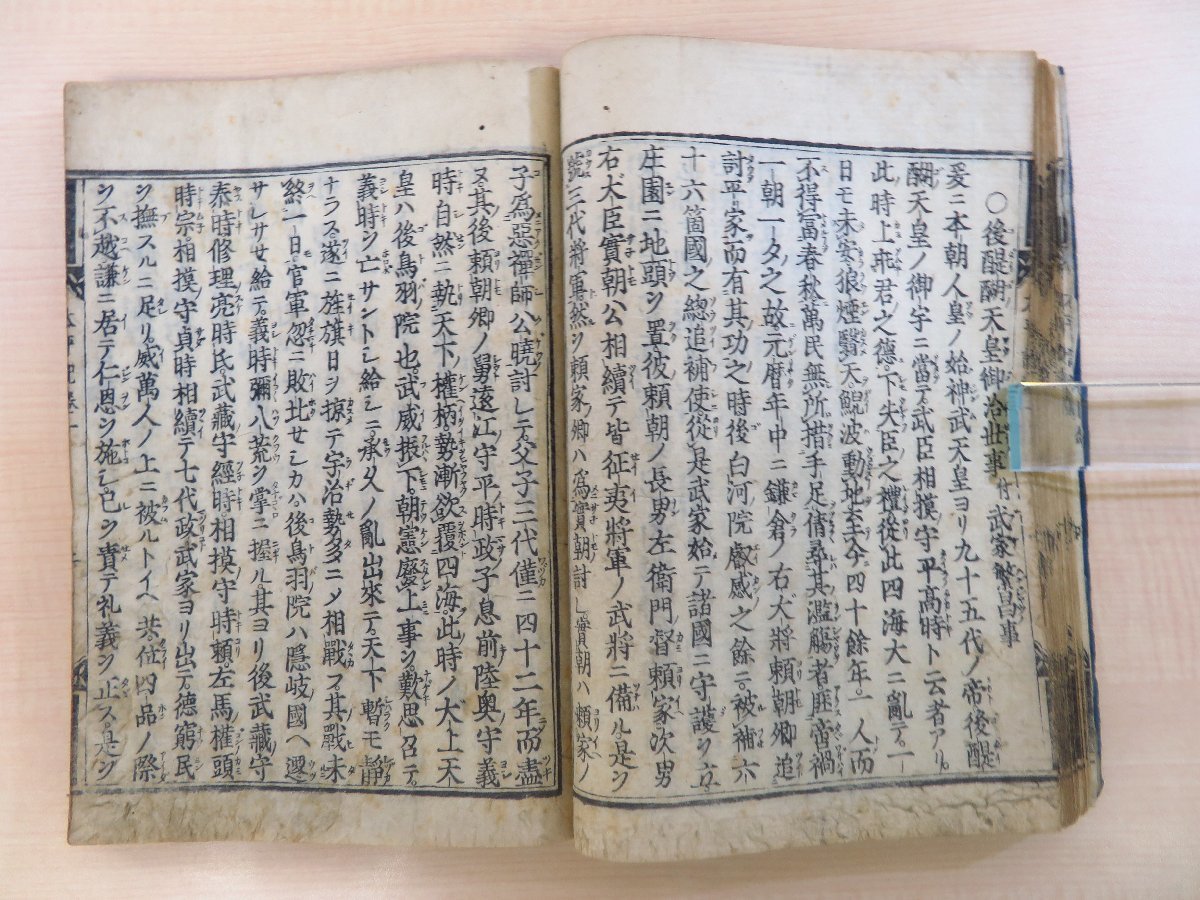 ○後醍醐天皇御治世事付武家繁昌事
爰ニ本朝人皇ノ始神武天皇ヨリ九十五代ノ帝後醍
醐天皇ノ御宇ニ當テ武臣相摸守平高時ト云者アリ
此時上乖君之德下失臣之禮從此四海大ニ亂テ一
日モ未安狼煙翳天鯢波動地至今四十餘年一人而
不得富春秋萬民無所措手足倩尋其濫觴者匪啻禍
一朝一夕之故元暦年中ニ鎌倉ノ右大將頼朝卿追
討平家而有其功之時後白河院叡感之餘ニ被補六
十六箇國之總追補使從是武家始テ諸國ニ守護ヲ立
庄園ニ地頭ヲ置彼頼朝ノ長男左衞門督頼家次男
右大臣實朝公相續テ皆征夷將軍ノ武將ニ備ル是ヲ
號三代將軍然ヲ頼家卿ハ爲實朝討レ實朝ハ頼家ノ
子爲惡禪師公曉討レテ父子三代僅ニ四十二年而盡
ヌ其後頼朝卿ノ舅遠江守平時政子息前陸奥守義
時自然ニ執天下權柄勢漸欲覆四海此時ノ大上天
皇ハ後鳥羽院也武威振下朝憲廢上事ヲ歎思召テ
義時ヲ亡サントシ給シニ承久ノ亂出來テ天下暫モ靜
ナラス遂ニ旌旗日ヲ掠テ宇治勢多ニメ相戰フ其戰未
終一日官軍忽ニ敗北セシカハ後鳥羽院ハ隠岐國ヘ遷
サレサセ給テ義時彌八荒ヲ掌ニ握ル其ヨリ後武藏守
泰時修理亮時氏武藏守經時相摸守時頼左馬權頭
時宗相摸守貞時相續テ七代政武家ヨリ出テ德窮民
ヲ撫スルニ足リ威萬人ノ上ニ被ルトイヘ共位四品ノ際
ヲ不越謙ニ居テ仁恩ヲ施シ己ヲ責テ礼義ヲ正ス是ヲ